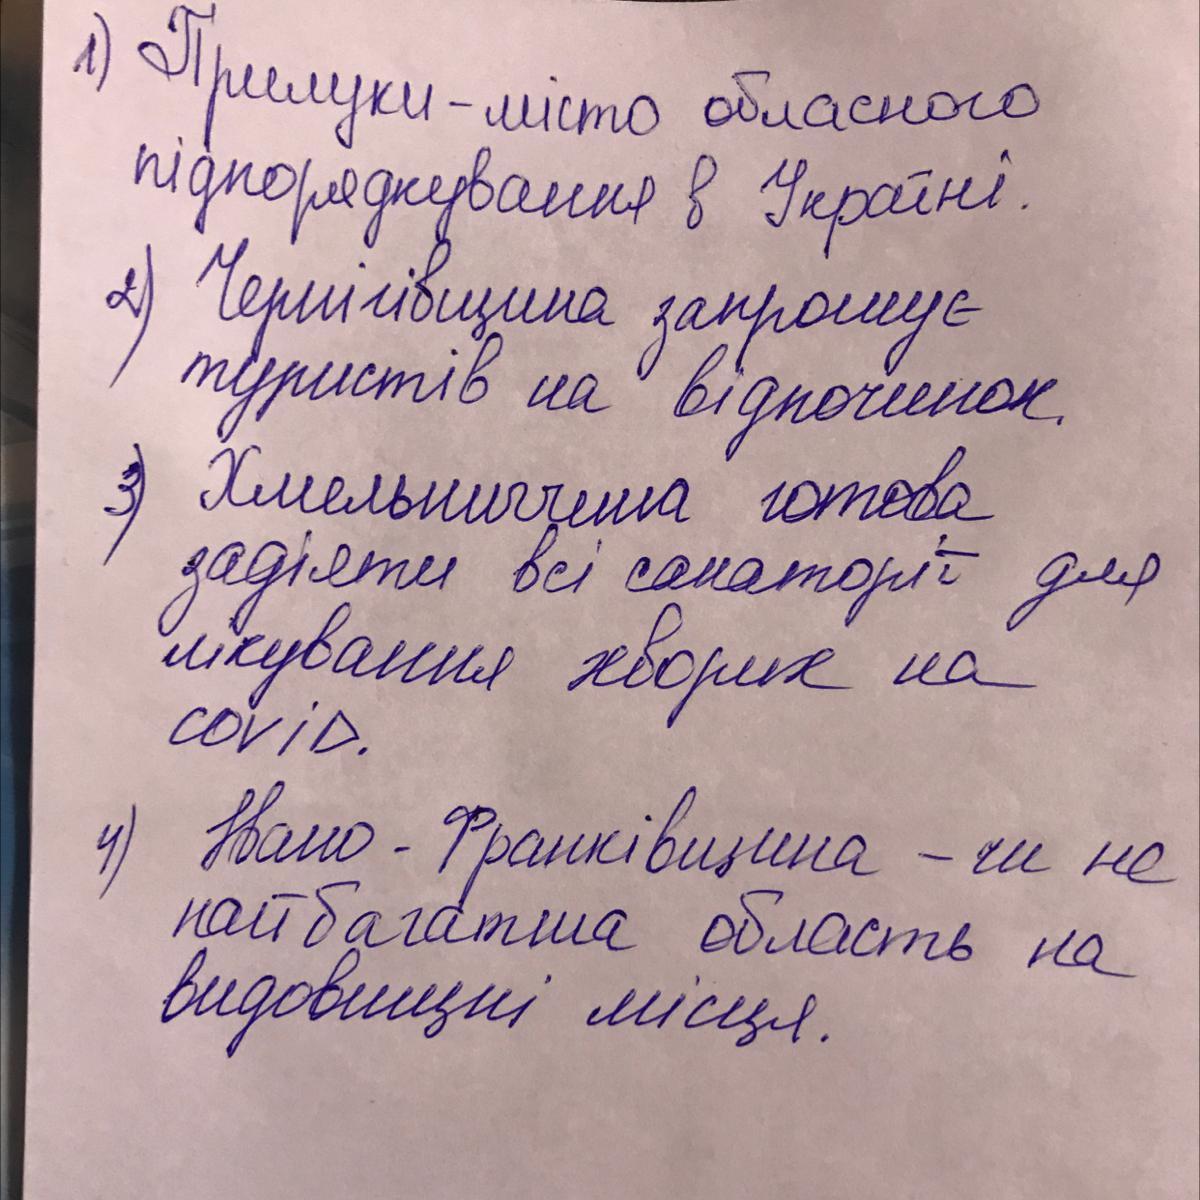 1) Прилуки - місто обласного
підпорядкування в Україні.
2) Чернігівщина запрошує
туристів на відпочинок.
3) Хмельниччина готова
задіяти всі санаторії для
лікування хворих на
COVID.
4) Івано - Франківщина - чи не
найбагатша область на
видовищні місця.